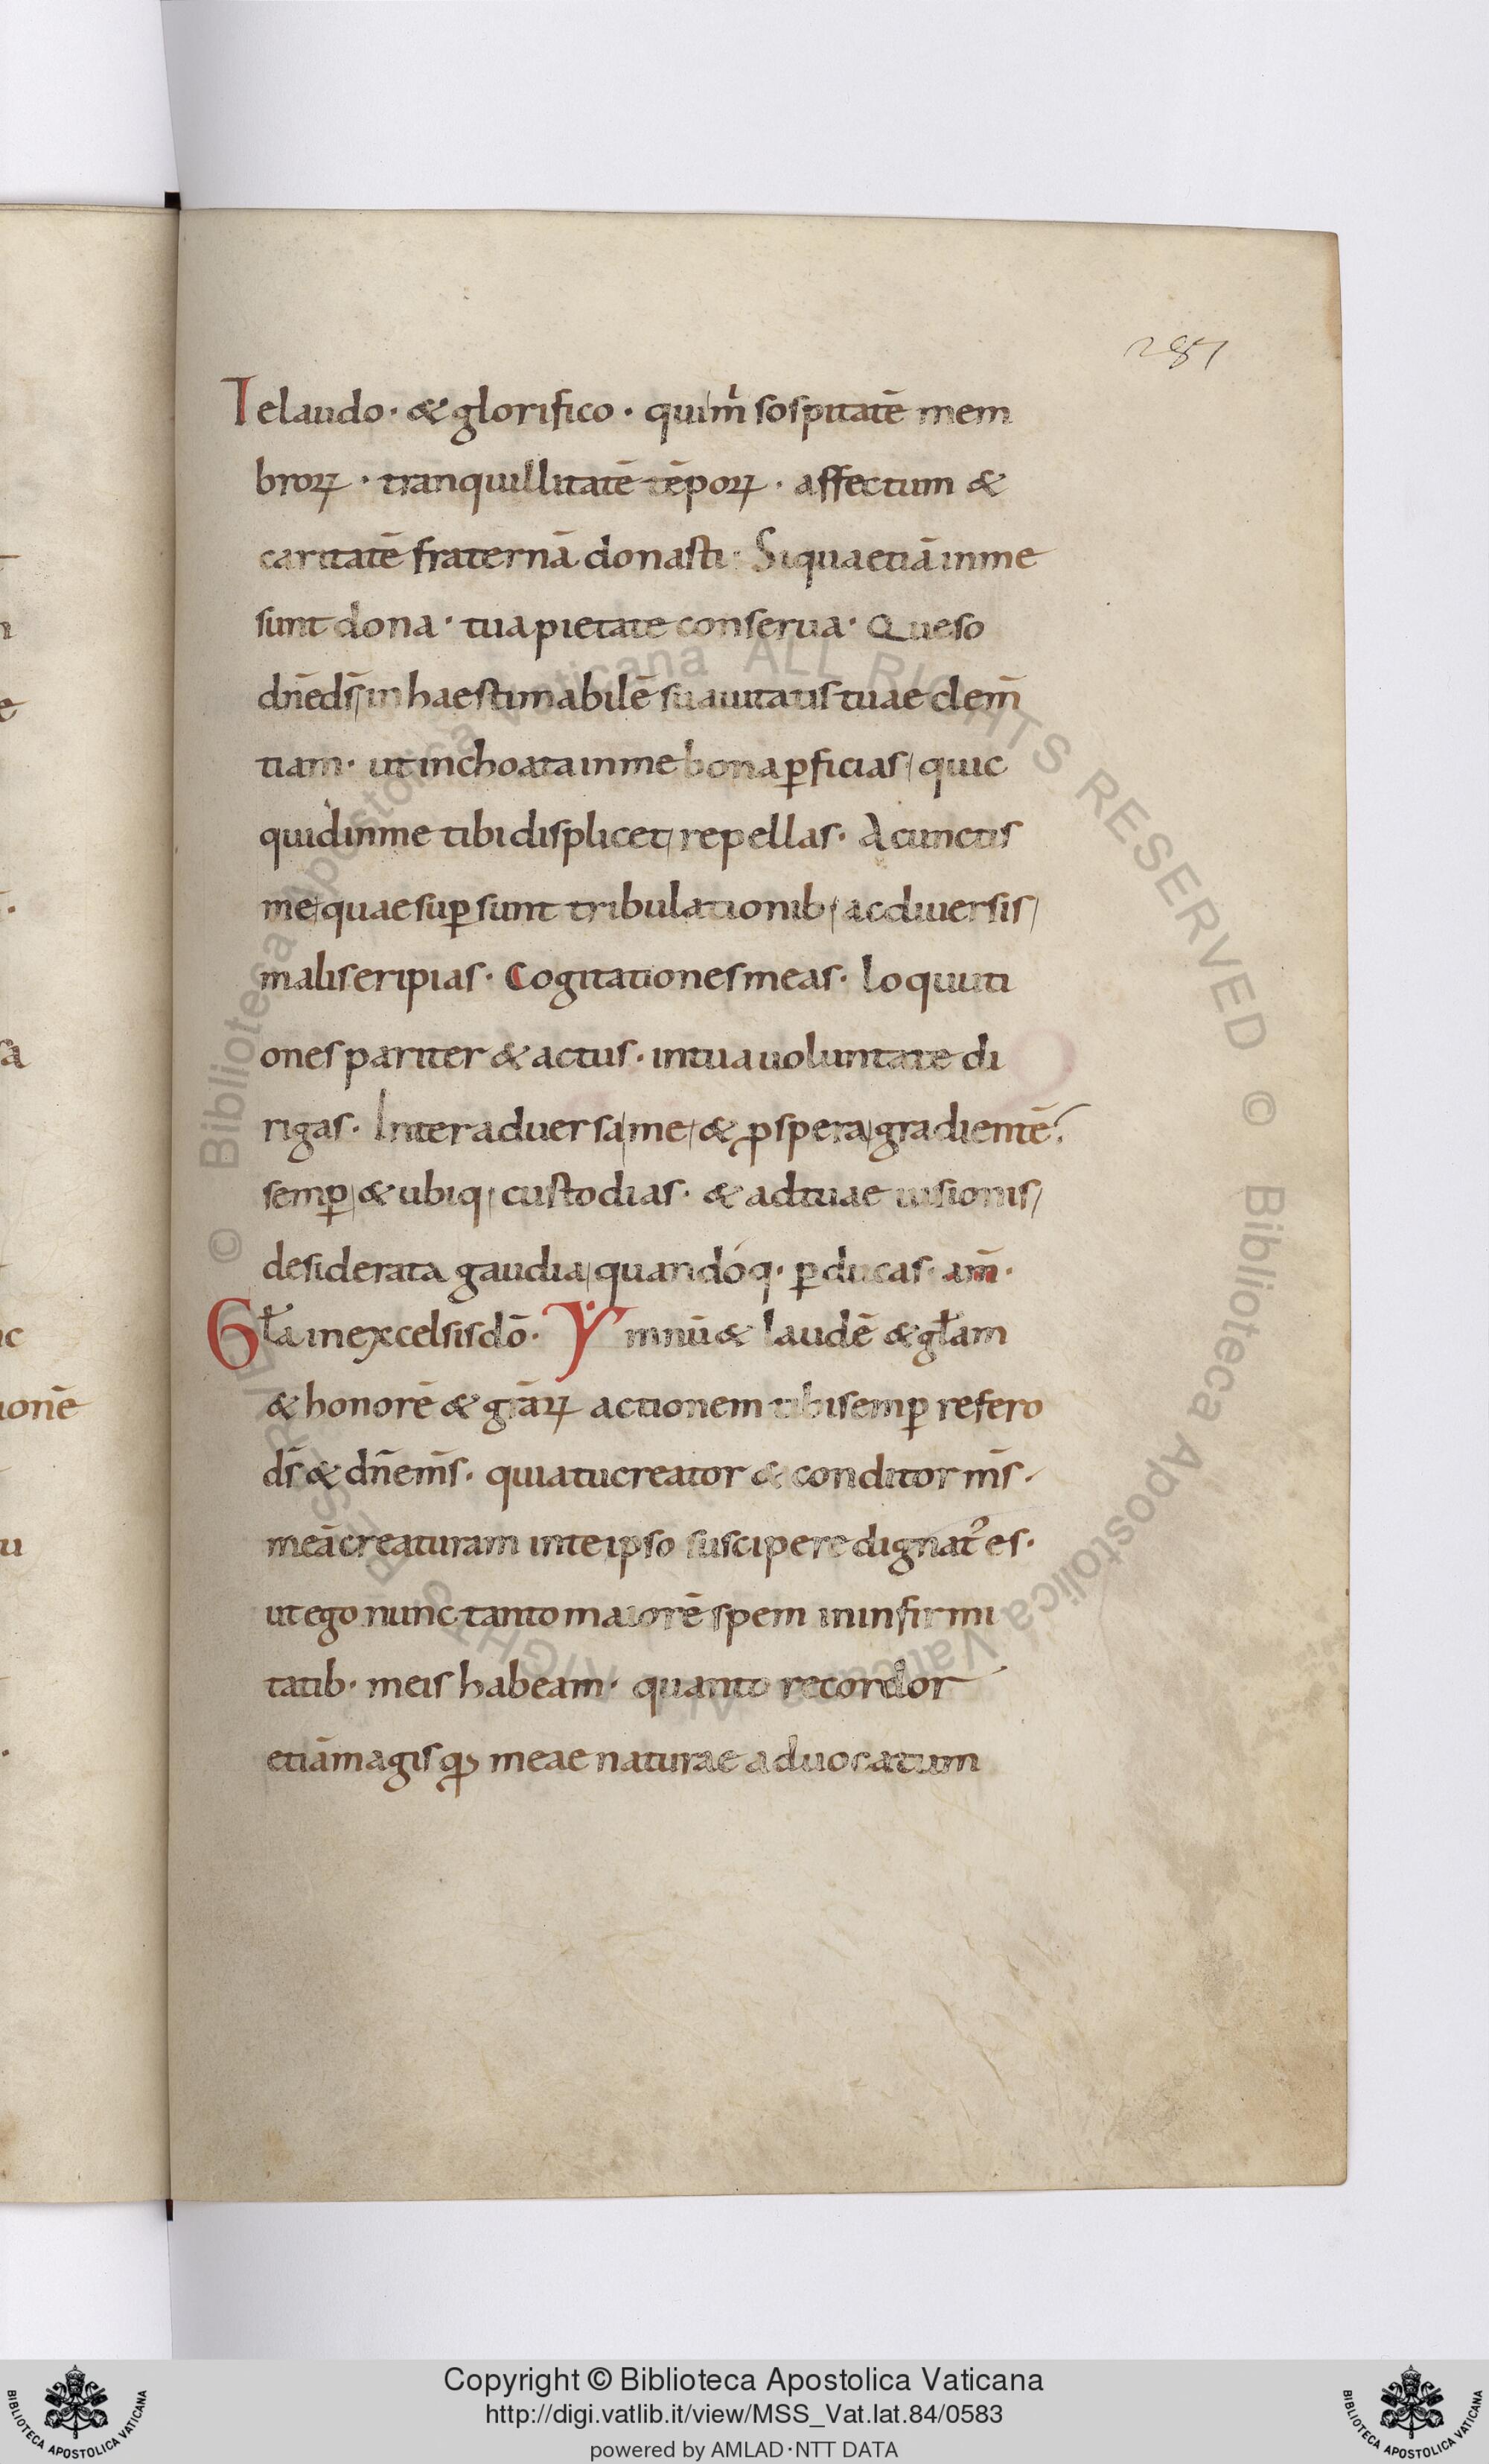 281
Te laudo · & glorifico · qui m̄ sospitatē mem
broꝝ · tranquillitatē tēpoꝝ · affectum &
caritatē fraternā donasti · Si qua etiā in me
sunt dona · tua pietate conserua · Queso
dn̄e ds̄ in haestimabilē suauitatis tuae clem̄
tiam · ut inchoata in me bona ꝑficias quic
quid in me tibi displicet repellas · A cunctis
me quae suꝑ sunt tribulationib; ac diuersis
malis eripias · Cogitationes meas · loquuti
ones pariter & actus · in tua uoluntate di
rigas · Inter aduersa me & ꝓspera gradientē
semꝑ & ubiq; custodias · & ad tuae uisionis
desiderata gaudia quandoq · ꝑducas · am̄ ·
Gła in excelsis dō · Ymnū & laudē & głam
& honorē & grāꝝ actionem tibi semꝑ refero
ds̄ & dn̄e ms̄ · quia tu creator & conditor ms̄ ·
meā creaturam in te ipso suscipere dignat᾽ es ·
ut ego nunc tanto maiorē spem in infirmi
tatib · meis habeam · quanto recordor
etiā magisq; meae naturae aduocatum
© Biblioteca Apostolica Vaticana ALL RIGHTS RESERVED © Biblioteca Apostolica Vaticana ALL RIGHTS RESERVED
Copyright © Biblioteca Apostolica Vaticana
http://digi.vatlib.it/view/MSS_Vat.lat.84/0583
powered by AMLAD·NTT DATA
BIBLIOTECA APOSTOLICA VATICANA
BIBLIOTECA APOSTOLICA VATICANA